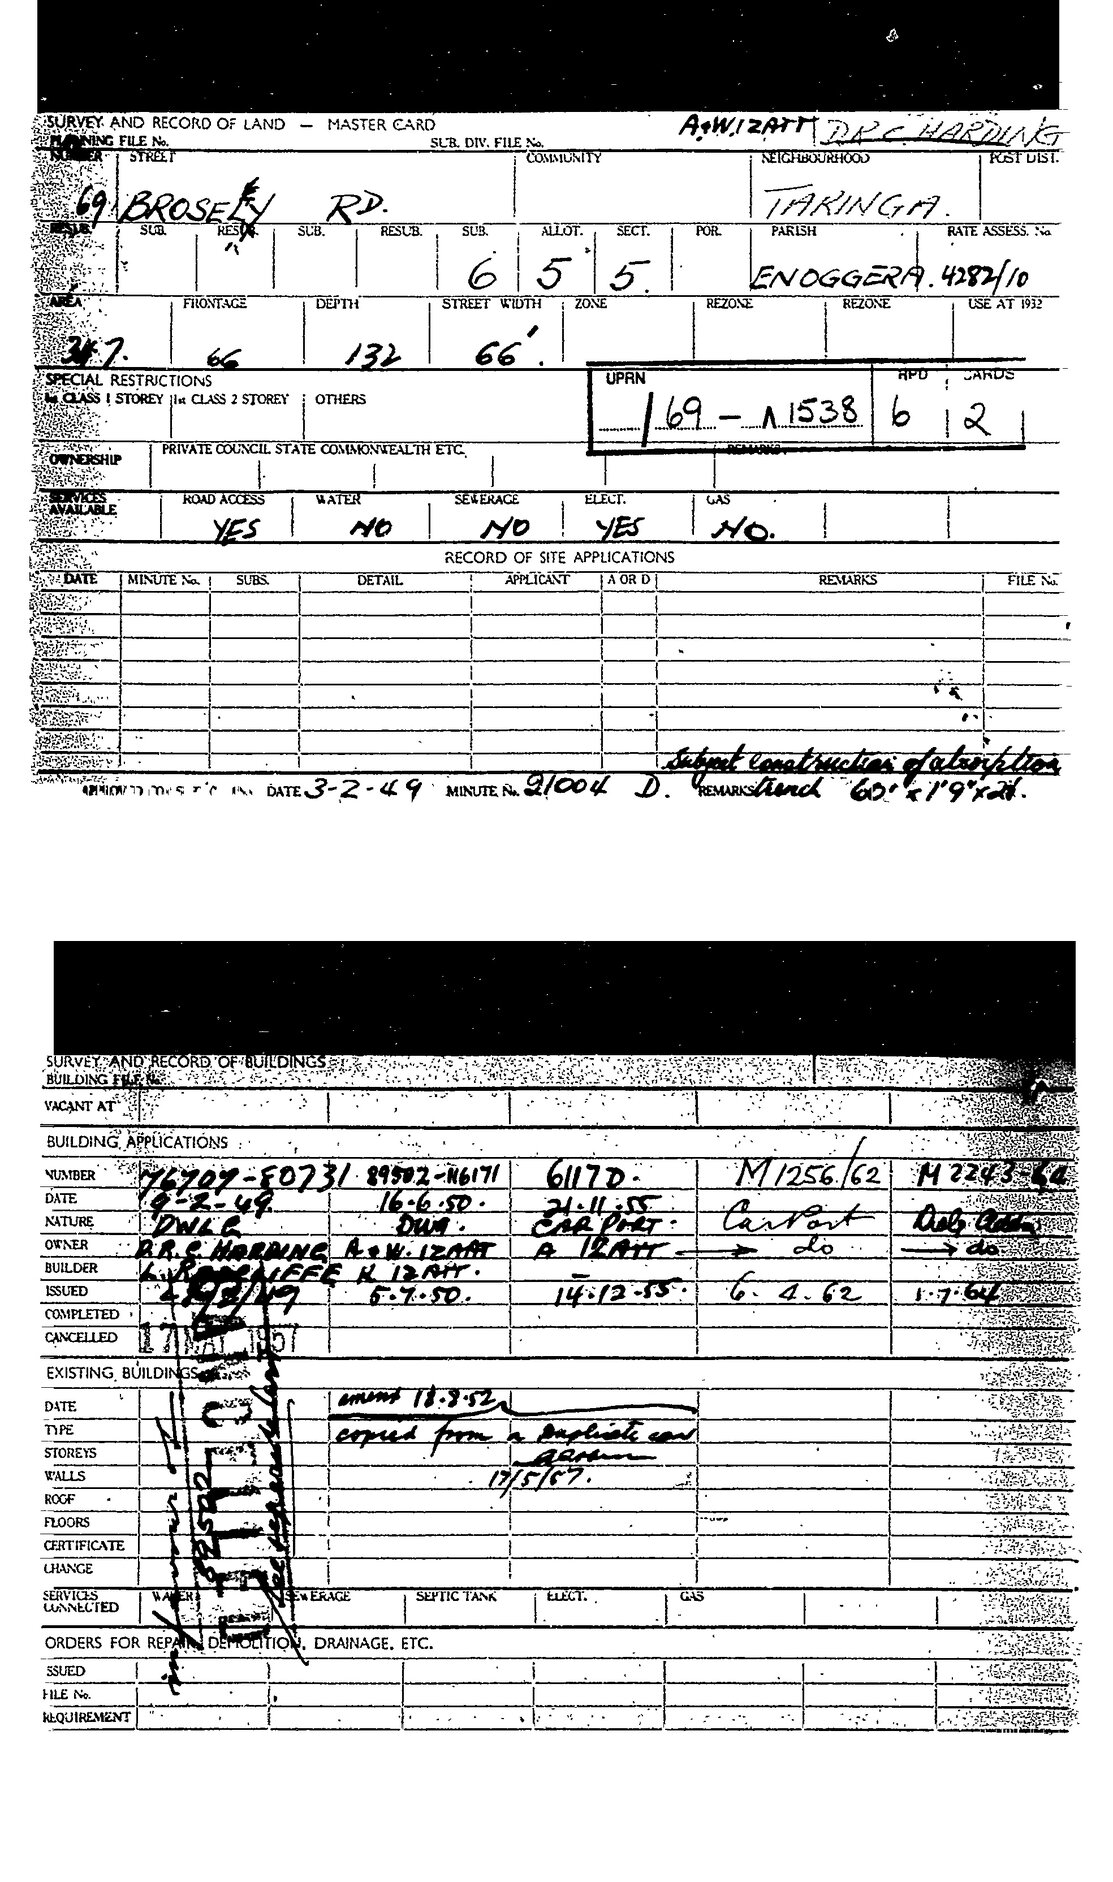 SURVEY AND RECORD OF LAND — MASTER CARD A & W. IZATT D.R.C. HARDING
PLANNING FILE No. SUB. DIV. FILE No.
NUMBER STREET COMMUNITY NEIGHBOURHOOD POST DIST.
69 BROSELEY RD. TARINGA.
RESUB. SUB. RESUB. SUB. RESUB. SUB. ALLOT. SECT. POR. PARISH RATE ASSESS. No.
6 5 5. ENOGGERA. 4282/10
AREA FRONTAGE DEPTH STREET WIDTH ZONE REZONE REZONE USE AT 1932
66 132 66'.
SPECIAL RESTRICTIONS UPRN RPD CARDS
1st CLASS 1 STOREY 1st CLASS 2 STOREY OTHERS
/69 - 1538 6 2
OWNERSHIP PRIVATE COUNCIL STATE COMMONWEALTH ETC. REMARKS
SERVICES AVAILABLE ROAD ACCESS WATER SEWERAGE ELECT. GAS
YES NO NO YES NO.
RECORD OF SITE APPLICATIONS
DATE MINUTE No. SUBS. DETAIL APPLICANT A OR D REMARKS FILE No.
Subject construction of absorption
DATE 3-2-49 MINUTE No. 21004 D. REMARKS trench 60' x 1'9" x 2'.
SURVEY AND RECORD OF BUILDINGS
BUILDING FILE No.
VACANT AT
BUILDING APPLICATIONS
NUMBER 76707-E0731 89502-H6171 6117D. M1256/62 M2243-64
DATE 9-2-49 16.6.50. 21.11.55
NATURE DWLG DWG. CAR PORT. Car Port
OWNER D.R.C HARDING A & W. IZATT A IZATT → do → do
BUILDER K IZATT. –
ISSUED 5.7.50. 14.12.55. 6.4.62 1.7.64
COMPLETED
CANCELLED 17 MAY 1957
EXISTING BUILDINGS
DATE amend 18.8.52
TYPE copied from a duplicate card
STOREYS
WALLS 17/5/57.
ROOF
FLOORS
CERTIFICATE
CHANGE
SERVICES CONNECTED WATER SEWERAGE SEPTIC TANK ELECT. GAS
ORDERS FOR REPAIR, DEMOLITION, DRAINAGE, ETC.
ISSUED
FILE No.
REQUIREMENT
in favour of
89502
See separate card